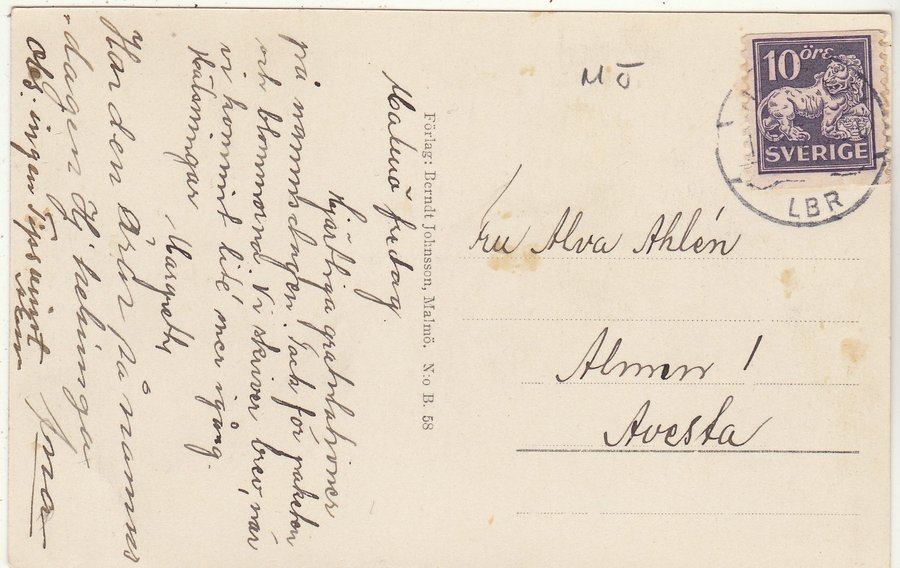 Malmö fredag.
Hjärtliga gratulationer
på namnsdagen. Tack för paketen
och blommorna. Vi skriver brev, när
vi kommit lite mer igång.
Hälsningar
Margreth
Har den äran på namns
dagen
Obs. ingen
Förlag: Berndt Johnsson, Malmö. N:o B. 58
MÖ
10 ÖRE
SVERIGE
LBR
Fru Alva Ahlén
Almen!
Avesta